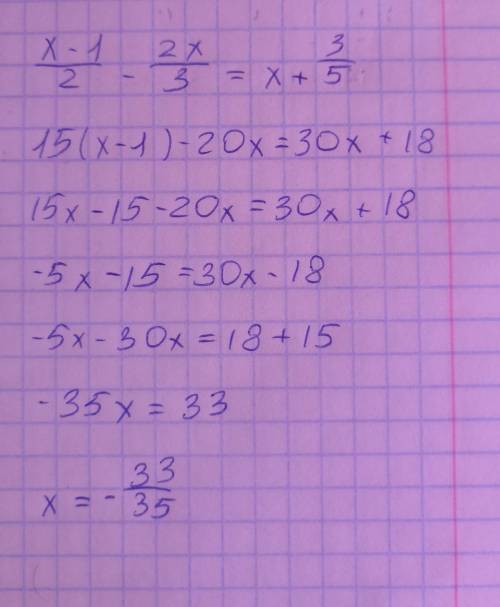 (x - 1)/2 - 2x/3 = x + 3/5
15(x-1) - 20x = 30x + 18
15x - 15 - 20x = 30x + 18
-5x - 15 = 30x - 18
-5x - 30x = 18 + 15
-35x = 33
x = - 33/35